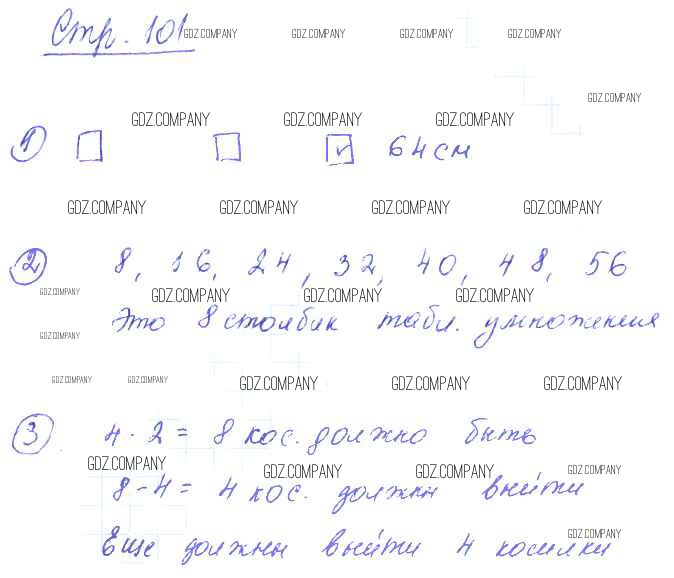 Стр. 101
GDZ.COMPANY GDZ.COMPANY GDZ.COMPANY GDZ.COMPANY
GDZ.COMPANY
GDZ.COMPANY GDZ.COMPANY GDZ.COMPANY
1 64 см
GDZ.COMPANY GDZ.COMPANY GDZ.COMPANY GDZ.COMPANY
2 8, 16, 24, 32, 40, 48, 56
GDZ.COMPANY GDZ.COMPANY GDZ.COMPANY GDZ.COMPANY
Это 8 столбик табл. умножения
GDZ.COMPANY
GDZ.COMPANY GDZ.COMPANY GDZ.COMPANY GDZ.COMPANY GDZ.COMPANY
3 4 · 2 = 8 кос. должно быть
GDZ.COMPANY GDZ.COMPANY GDZ.COMPANY GDZ.COMPANY
8 - 4 = 4 кос. должны выйти
GDZ.COMPANY
Еще должны выйти 4 косилки